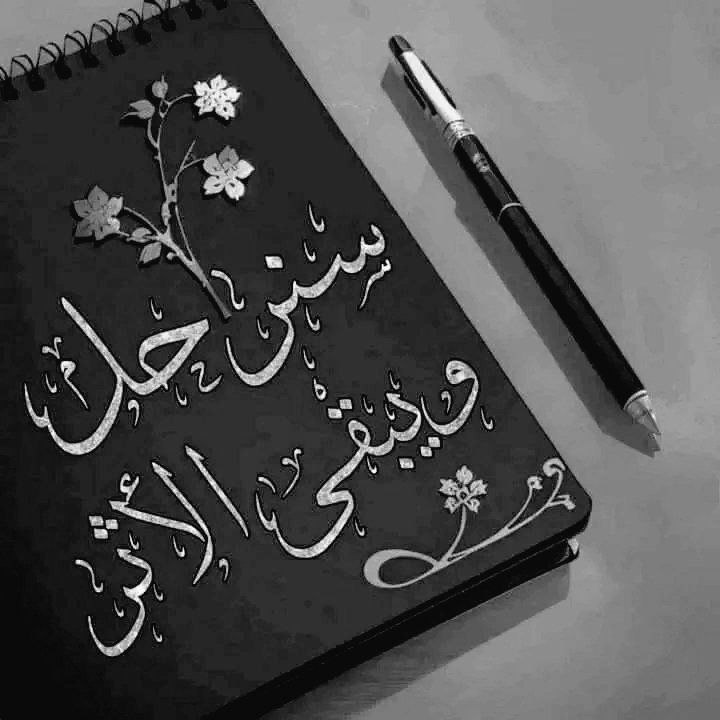 سنرحل
ويبقى الأثر